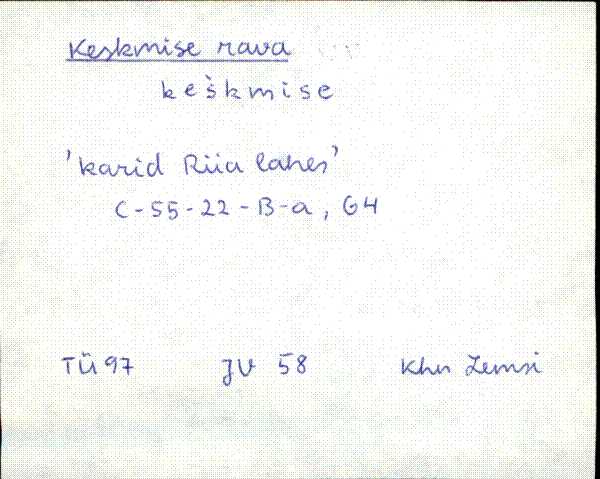 Keskmise rava
keškmise
'karid Riia lahes'
C-55-22-B-a, G4
TÜ 97 JV 58 Khn Lemsi